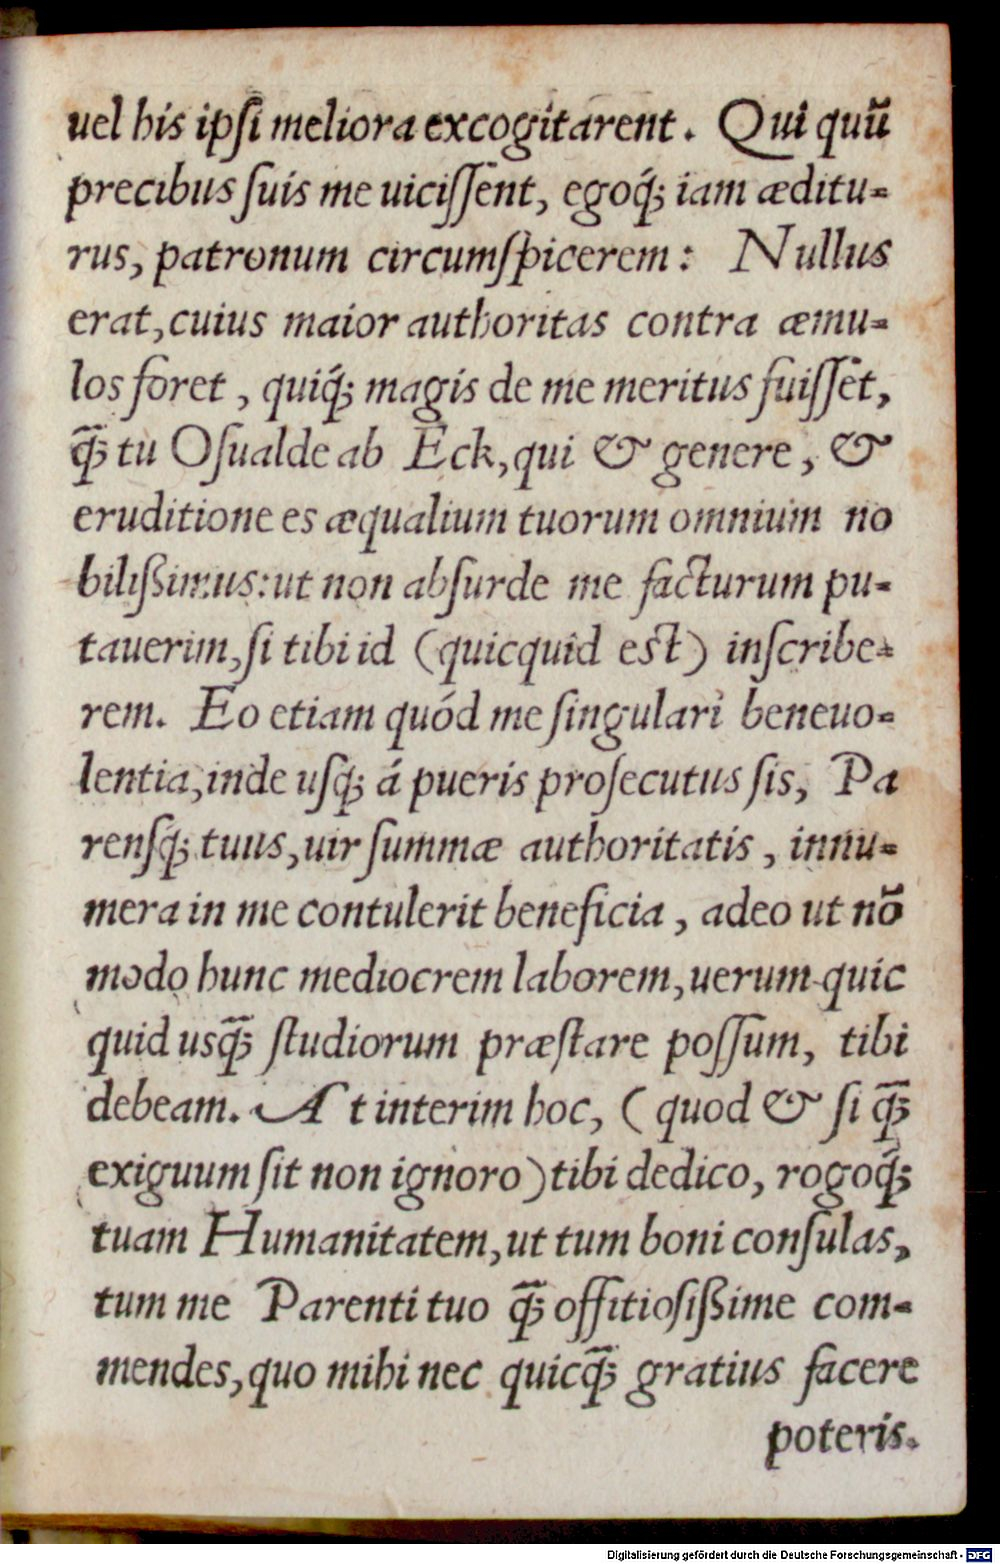 uel his ipſi meliora excogitarent. Qui quũ
precibus ſuis me uiciſſent, egoq́; iam æditu-
rus, patronum circumſpicerem: Nullus
erat, cuius maior authoritas contra æmu-
los foret, quiq́; magis de me meritus fuiſſet,
q̃; tu Oſualde ab Eck, qui & genere, &
eruditione es æqualium tuorum omnium no
biliſsimus: ut non abſurde me facturum pu-
tauerim, ſi tibi id (quicquid est) inſcribe-
rem. Eo etiam quód me ſingulari beneuo-
lentia, inde uſq́; á pueris proſecutus ſis, Pa
renſq́; tuus, uir ſummæ authoritatis, innu-
mera in me contulerit beneficia, adeo ut nõ
modo hunc mediocrem laborem, uerum quic
quid usq̃; ſtudiorum præſtare poſſum, tibi
debeam. At interim hoc, (quod & ſi q̃;
exiguum ſit non ignoro) tibi dedico, rogoq́;
tuam Humanitatem, ut tum boni conſulas,
tum me Parenti tuo q̃; offitioſiſsime com-
mendes, quo mihi nec quicq̃; gratius facere
poteris.
Digitalisierung gefördert durch die Deutsche Forschungsgemeinschaft - DFG